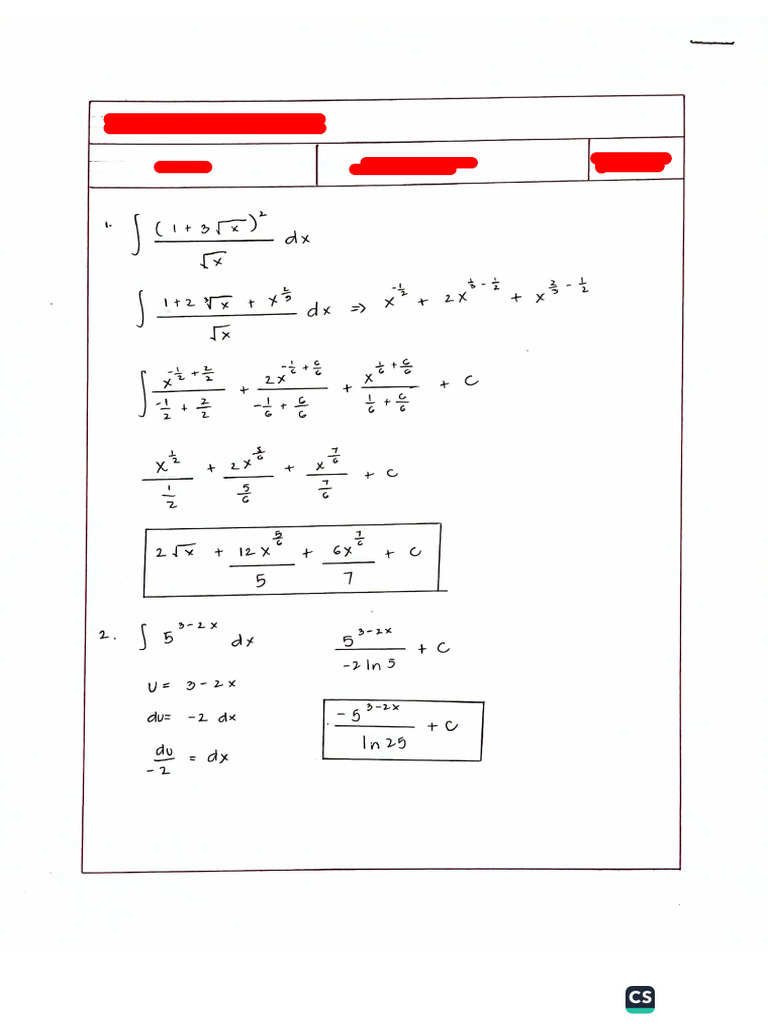 1. ∫ (1 + 3√x)² / √x dx
∫ (1 + 2 ³√x + x^(2/3)) / √x dx => x^(-1/2) + 2x^(1/3 - 1/2) + x^(2/3 - 1/2)
∫ x^(-1/2 + 2/2) / (-1/2 + 2/2) + 2x^(-1/6 + 6/6) / (-1/6 + 6/6) + x^(1/6 + 6/6) / (1/6 + 6/6) + C
x^(1/2) / (1/2) + 2x^(5/6) / (5/6) + x^(7/6) / (7/6) + C
2√x + 12x^(5/6) / 5 + 6x^(7/6) / 7 + C
2. ∫ 5^(3-2x) dx
U = 3 - 2x
du = -2 dx
du / -2 = dx
5^(3-2x) / (-2 ln 5) + C
-5^(3-2x) / (ln 25) + C
CS